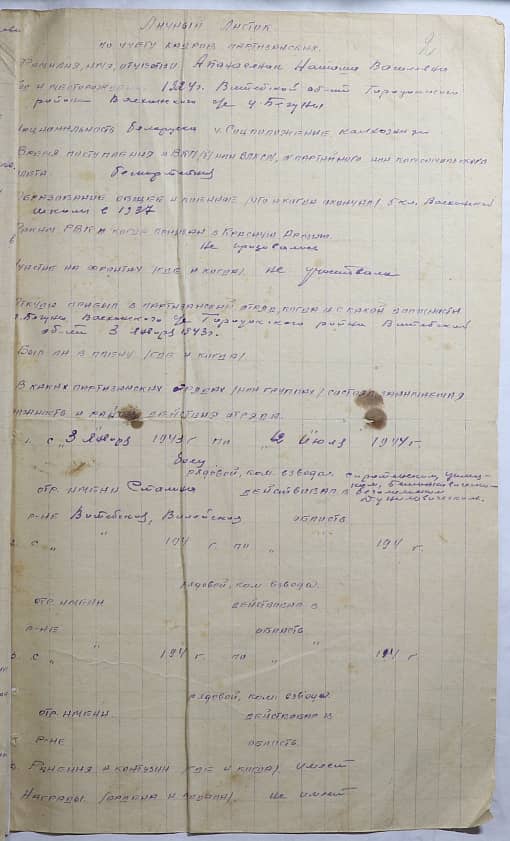 Личный Листик
по учету кадров партизанских.
Фамилия, имя, отчество Апанасенак Наташа Василевна
1924г. Витебской облти Городокского
района Войханского с/с д. Бегуны
Национальность беларуска 4. Соцположение калхозница
Время поступления в ВКП/б/ или ВЛКСМ, № партийного или комсомольского
билета. беспартийная
Образование общее и военное /что и когда окончил/ 5 кл. Войханской
школи в 1937
Каким РВК и когда призван в Красную Армию.
Не призвалася
Участие на фронтах /где и когда/. не участвала
Откуда прибыл в партизанский отряд, когда и с какой должности
д. Бегуны Войханского с/с Городокского района Витебской
облти 3 января 1943г.
Был ли в плену /где и когда/.
В каких партизанских отрядах /или группах/ состоял, занимаемая
должность и район действия отряда.
1. с "3 января 1943 г по " июля 1944 г.
рядовой, ком. взвода.
отр. имени Сталина действовал в
р-не Витебской, Вилейской область
2. с " " 194 г. по " 194 г.
рядовой, ком. взвода.
отр. имени действовал в
р-не область
3. с " " 194 г. по " " 194 г
рядовой, ком. взвода
отр. имени. действовал в
р-не область
Ранения и контузии /где и когда/. имеет
Награды /ордена и медали/. не имеет